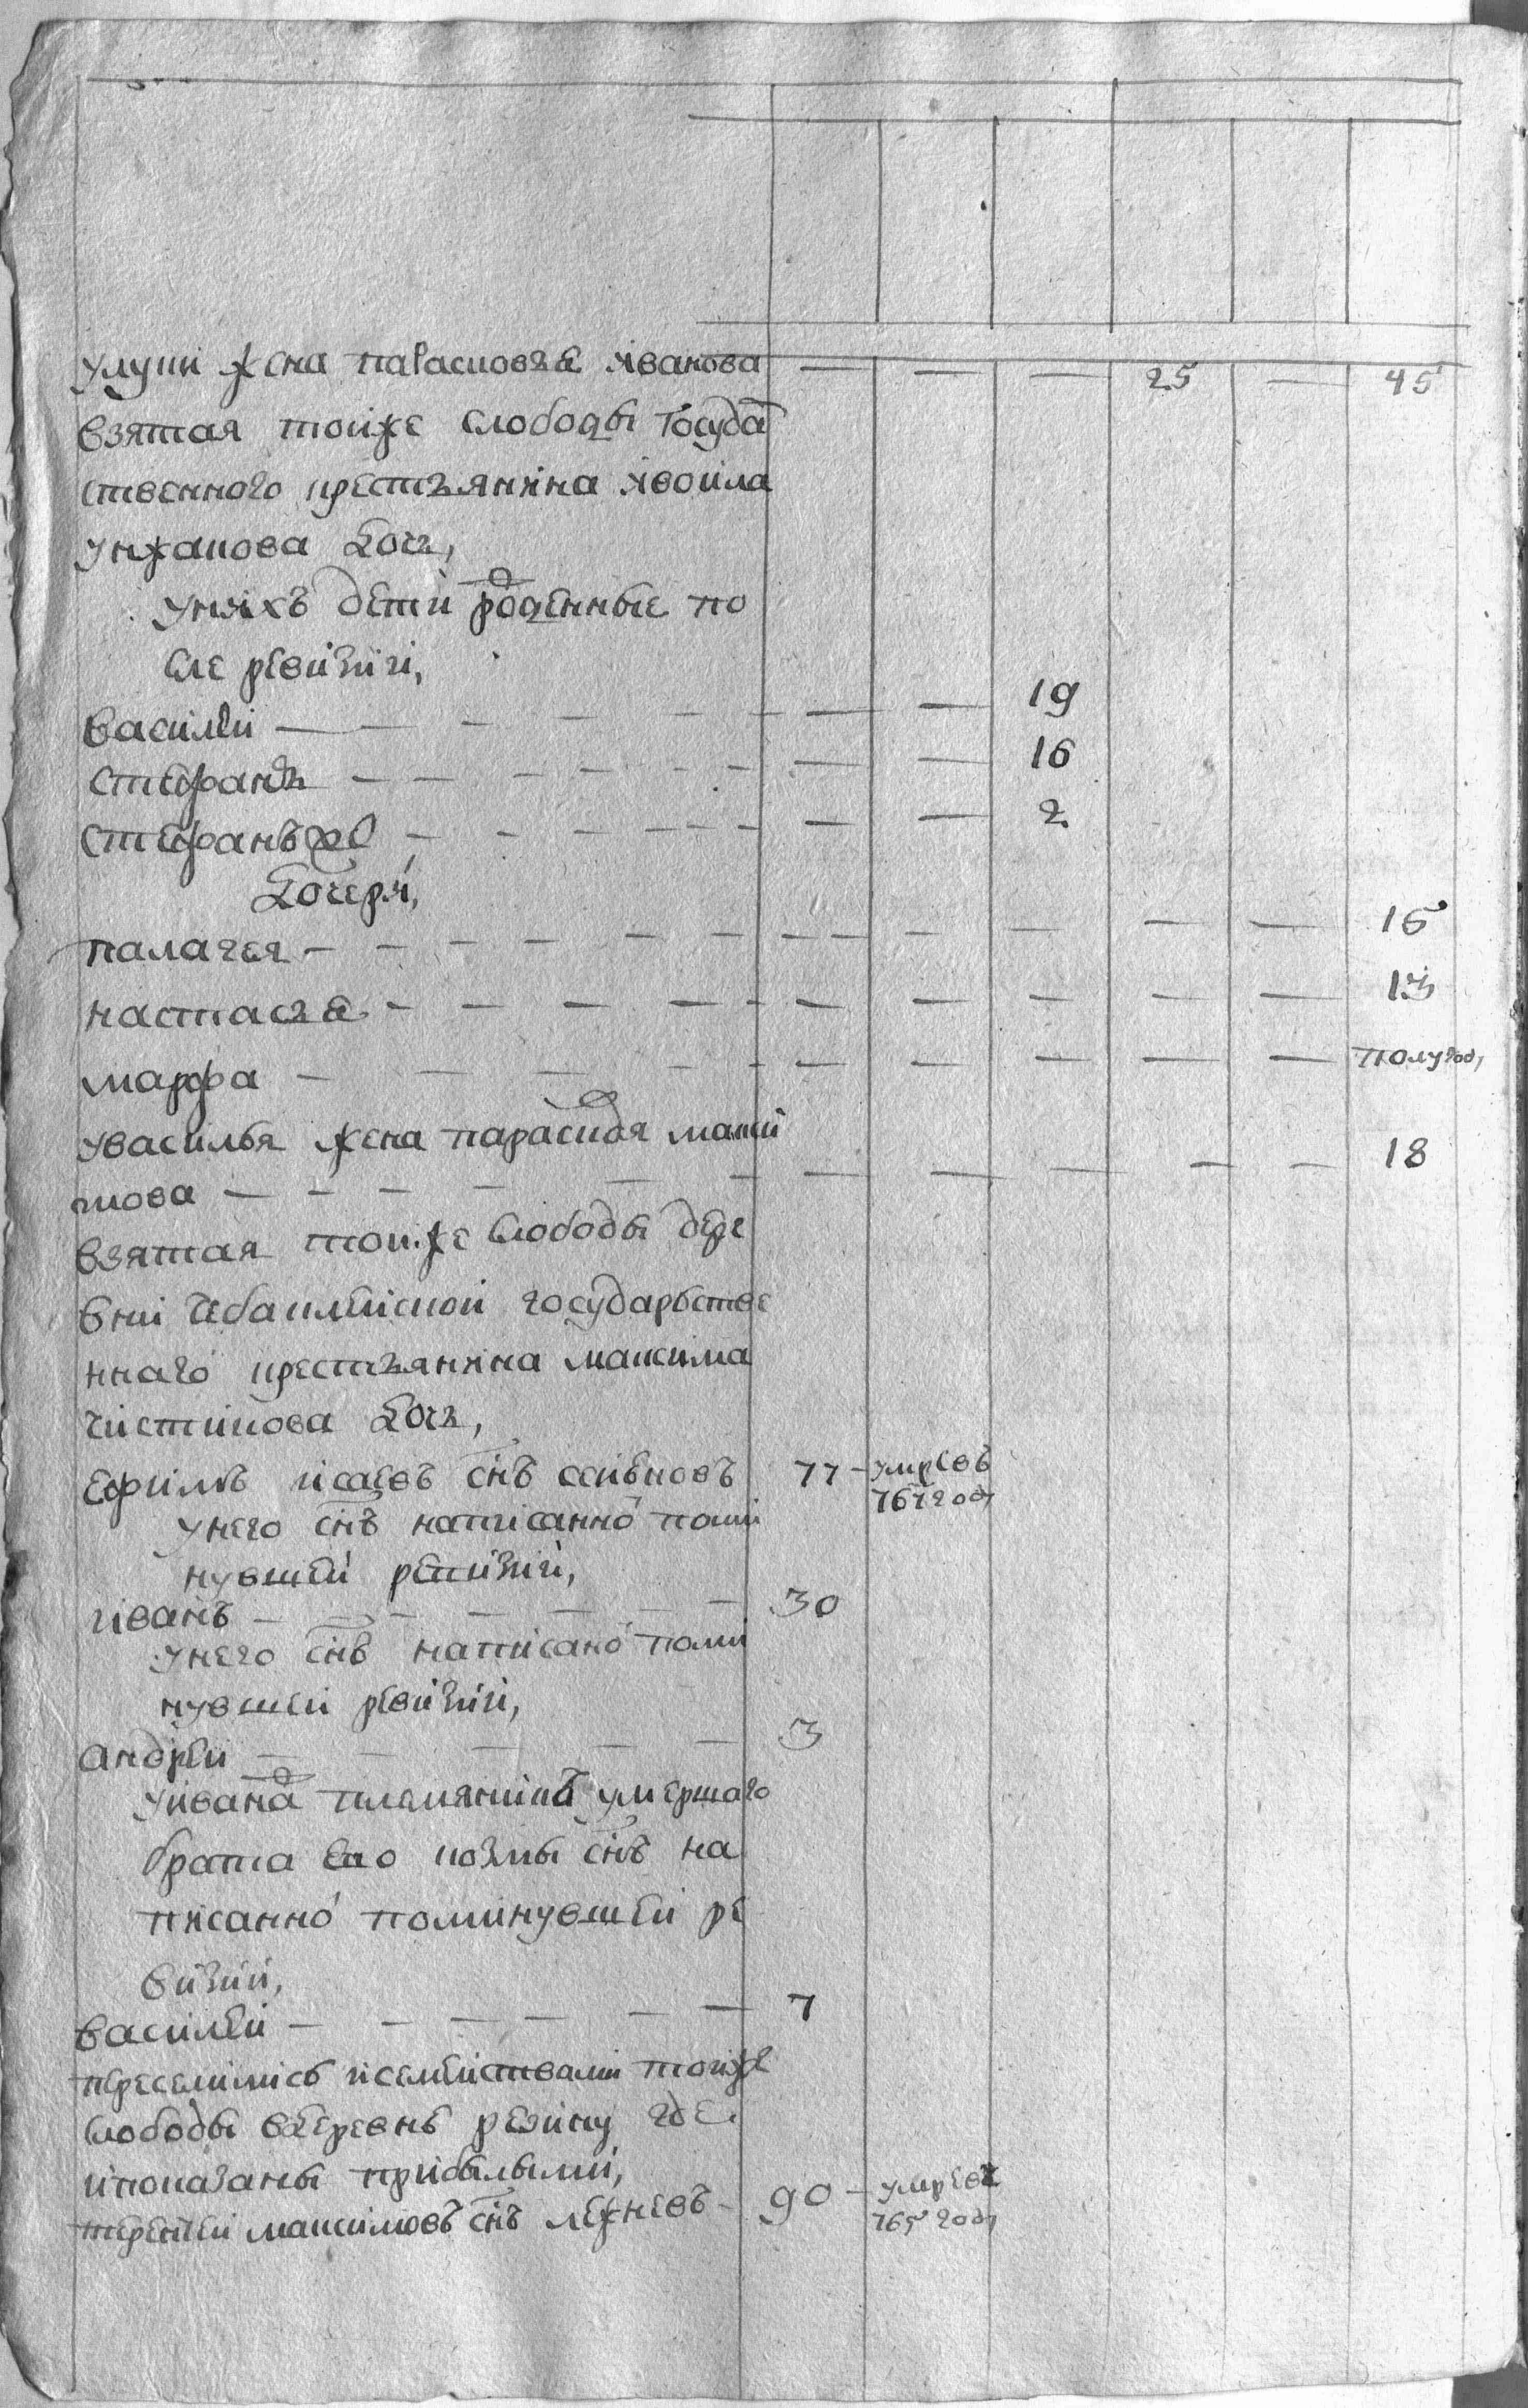 улуки жена параскови иванова — — — 25 — 45
взятая тоиже слободы Госуда
ственного крестьянина
унжакова доч,
унихъ дети роденные по
сле ревизиı,
василеи — — — — — — — — 19
стефанъ — — — — — — — — 16
стефанъ же — — — — — — — 2
дочери,
палагея — — — — — — — — — — — 15
настасья — — — — — — — — — — 13
марфа — — — — — — — — — — полугод,
увасилья жена парасковя макси
мова — — — — — — — — — — — 18
взятая тоиже слободы дере
вни государьстве
ннаго крестьянина максима
чистикова доч,
ефимъ исаевъ снъ 77 — умре въ
767 год
унего снъ написанно поми
нувшеи ревизии,
иванъ — — — — — — 30
унего снъ написано поми
нувшеи ревизии,
андреи — — — — — 3
уивана племянникъ умершаго
брата ево козмы снъ на
писанно поминувшеи ре
визии,
василеи — — — — — — 7
переселились исемеиствами тоиже
слободы вдеревнѣ резину где
ипоказаны прибылыми,
терентеи максимовъ снъ лежневъ — 90 — умре въ
765 год